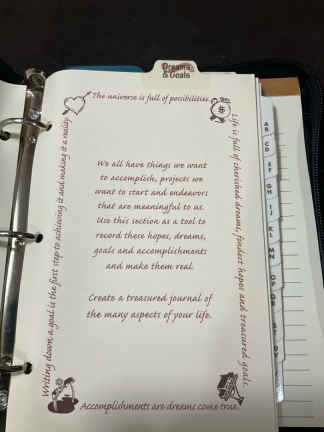 Dreams
& Goals
The universe is full of possibilities.
Life is full of cherished dreams, fondest hopes and treasured goals.
We all have things we want
to accomplish, projects we
want to start and endeavors
that are meaningful to us.
Use this section as a tool to
record these hopes, dreams,
goals and accomplishments
and make them real.
Create a treasured journal of
the many aspects of your life.
Writing down a goal is the first step to achieving it and making it a reality
Accomplishments are dreams come true.
$
AB
CD
EF
GH
IJ
KL
MN
OP
QR